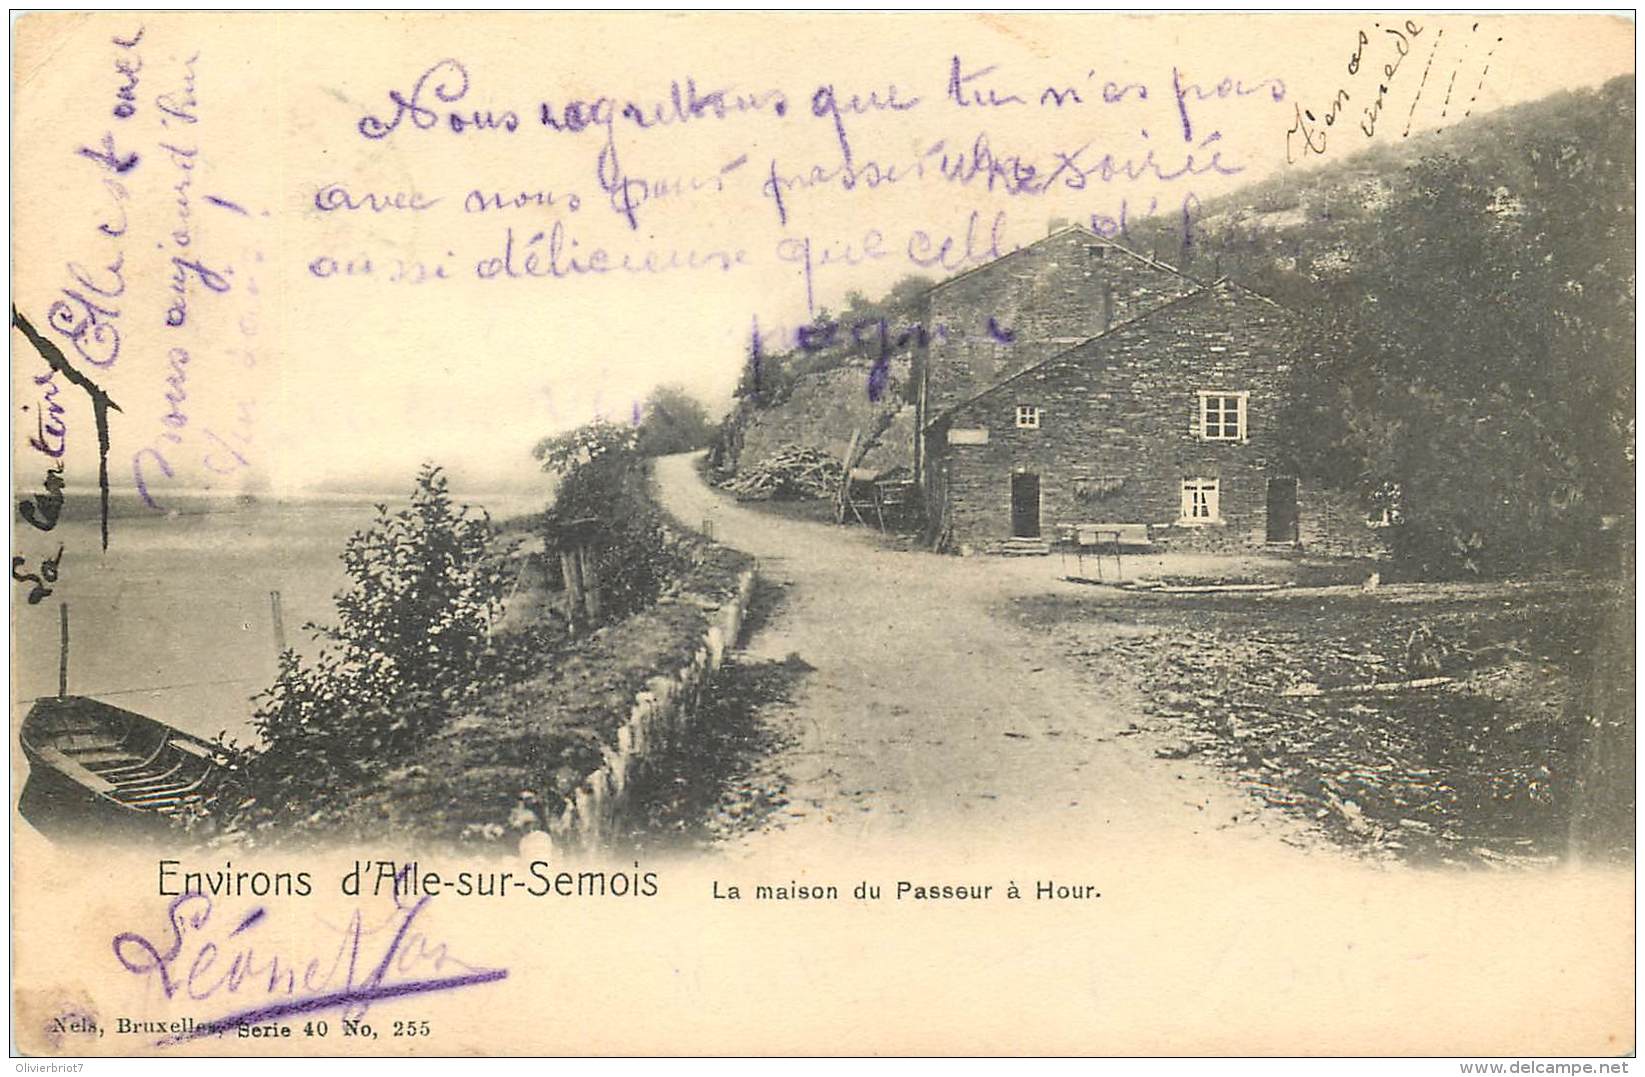 Nous regrettons que tu n'as pas
avec nous pour passer une soirée
aussi délicieuse que celle d'
pagne
T'en as
une de
Elle est avec
nous aujourd'hui
La
Environs d'Alle-sur-Semois
La maison du Passeur à Hour.
Léon et
Nels, Bruxelles, Serie 40 No, 255
Olivierbriot7
www.delcampe.net